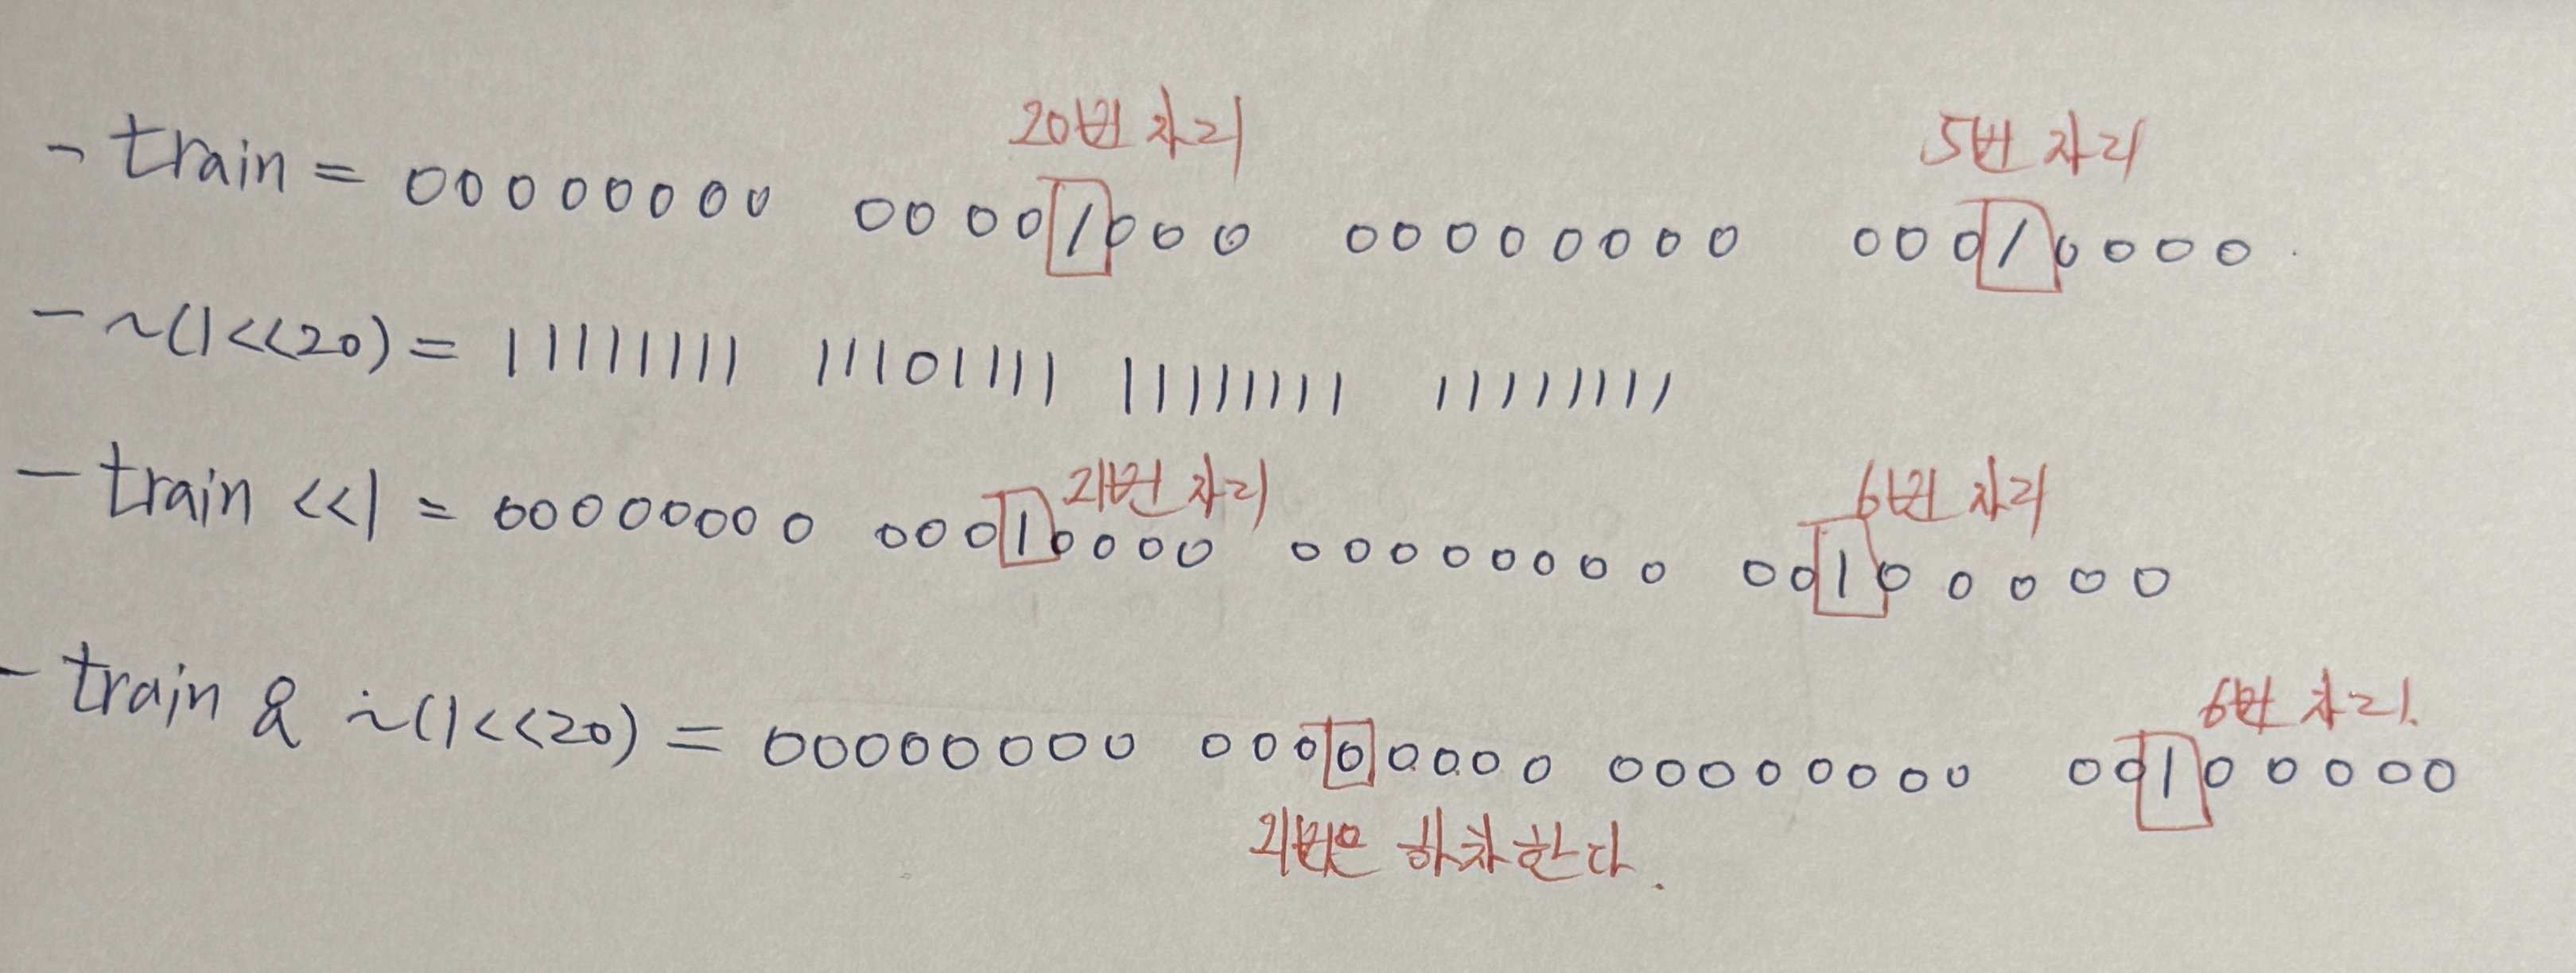 20번 자리 5번 자리
- train = 00000000 00001000 00000000 00010000
- ~(1<<20) = 11111111 11101111 11111111 11111111
21번 자리 6번 자리
- train <<1 = 00000000 00010000 00000000 00100000
6번 자리
- train & ~(1<<20) = 00000000 00000000 00000000 00100000
21번은 하차한다.